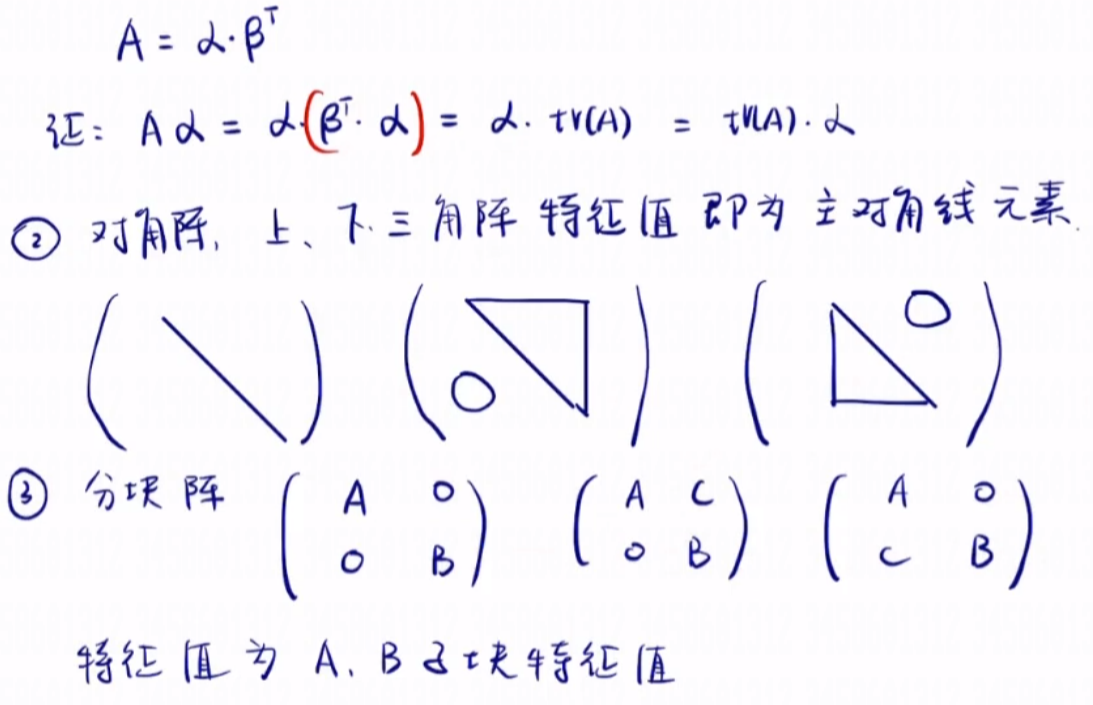 A = α·βᵀ
证: Aα = α·(βᵀ·α) = α·tr(A) = tr(A)·α
② 对角阵, 上、下三角阵 特征值 即为 主对角线元素.
O O
③ 分块阵 (A O O B) (A C O B) (A O C B)
特征值为 A、B 子块特征值